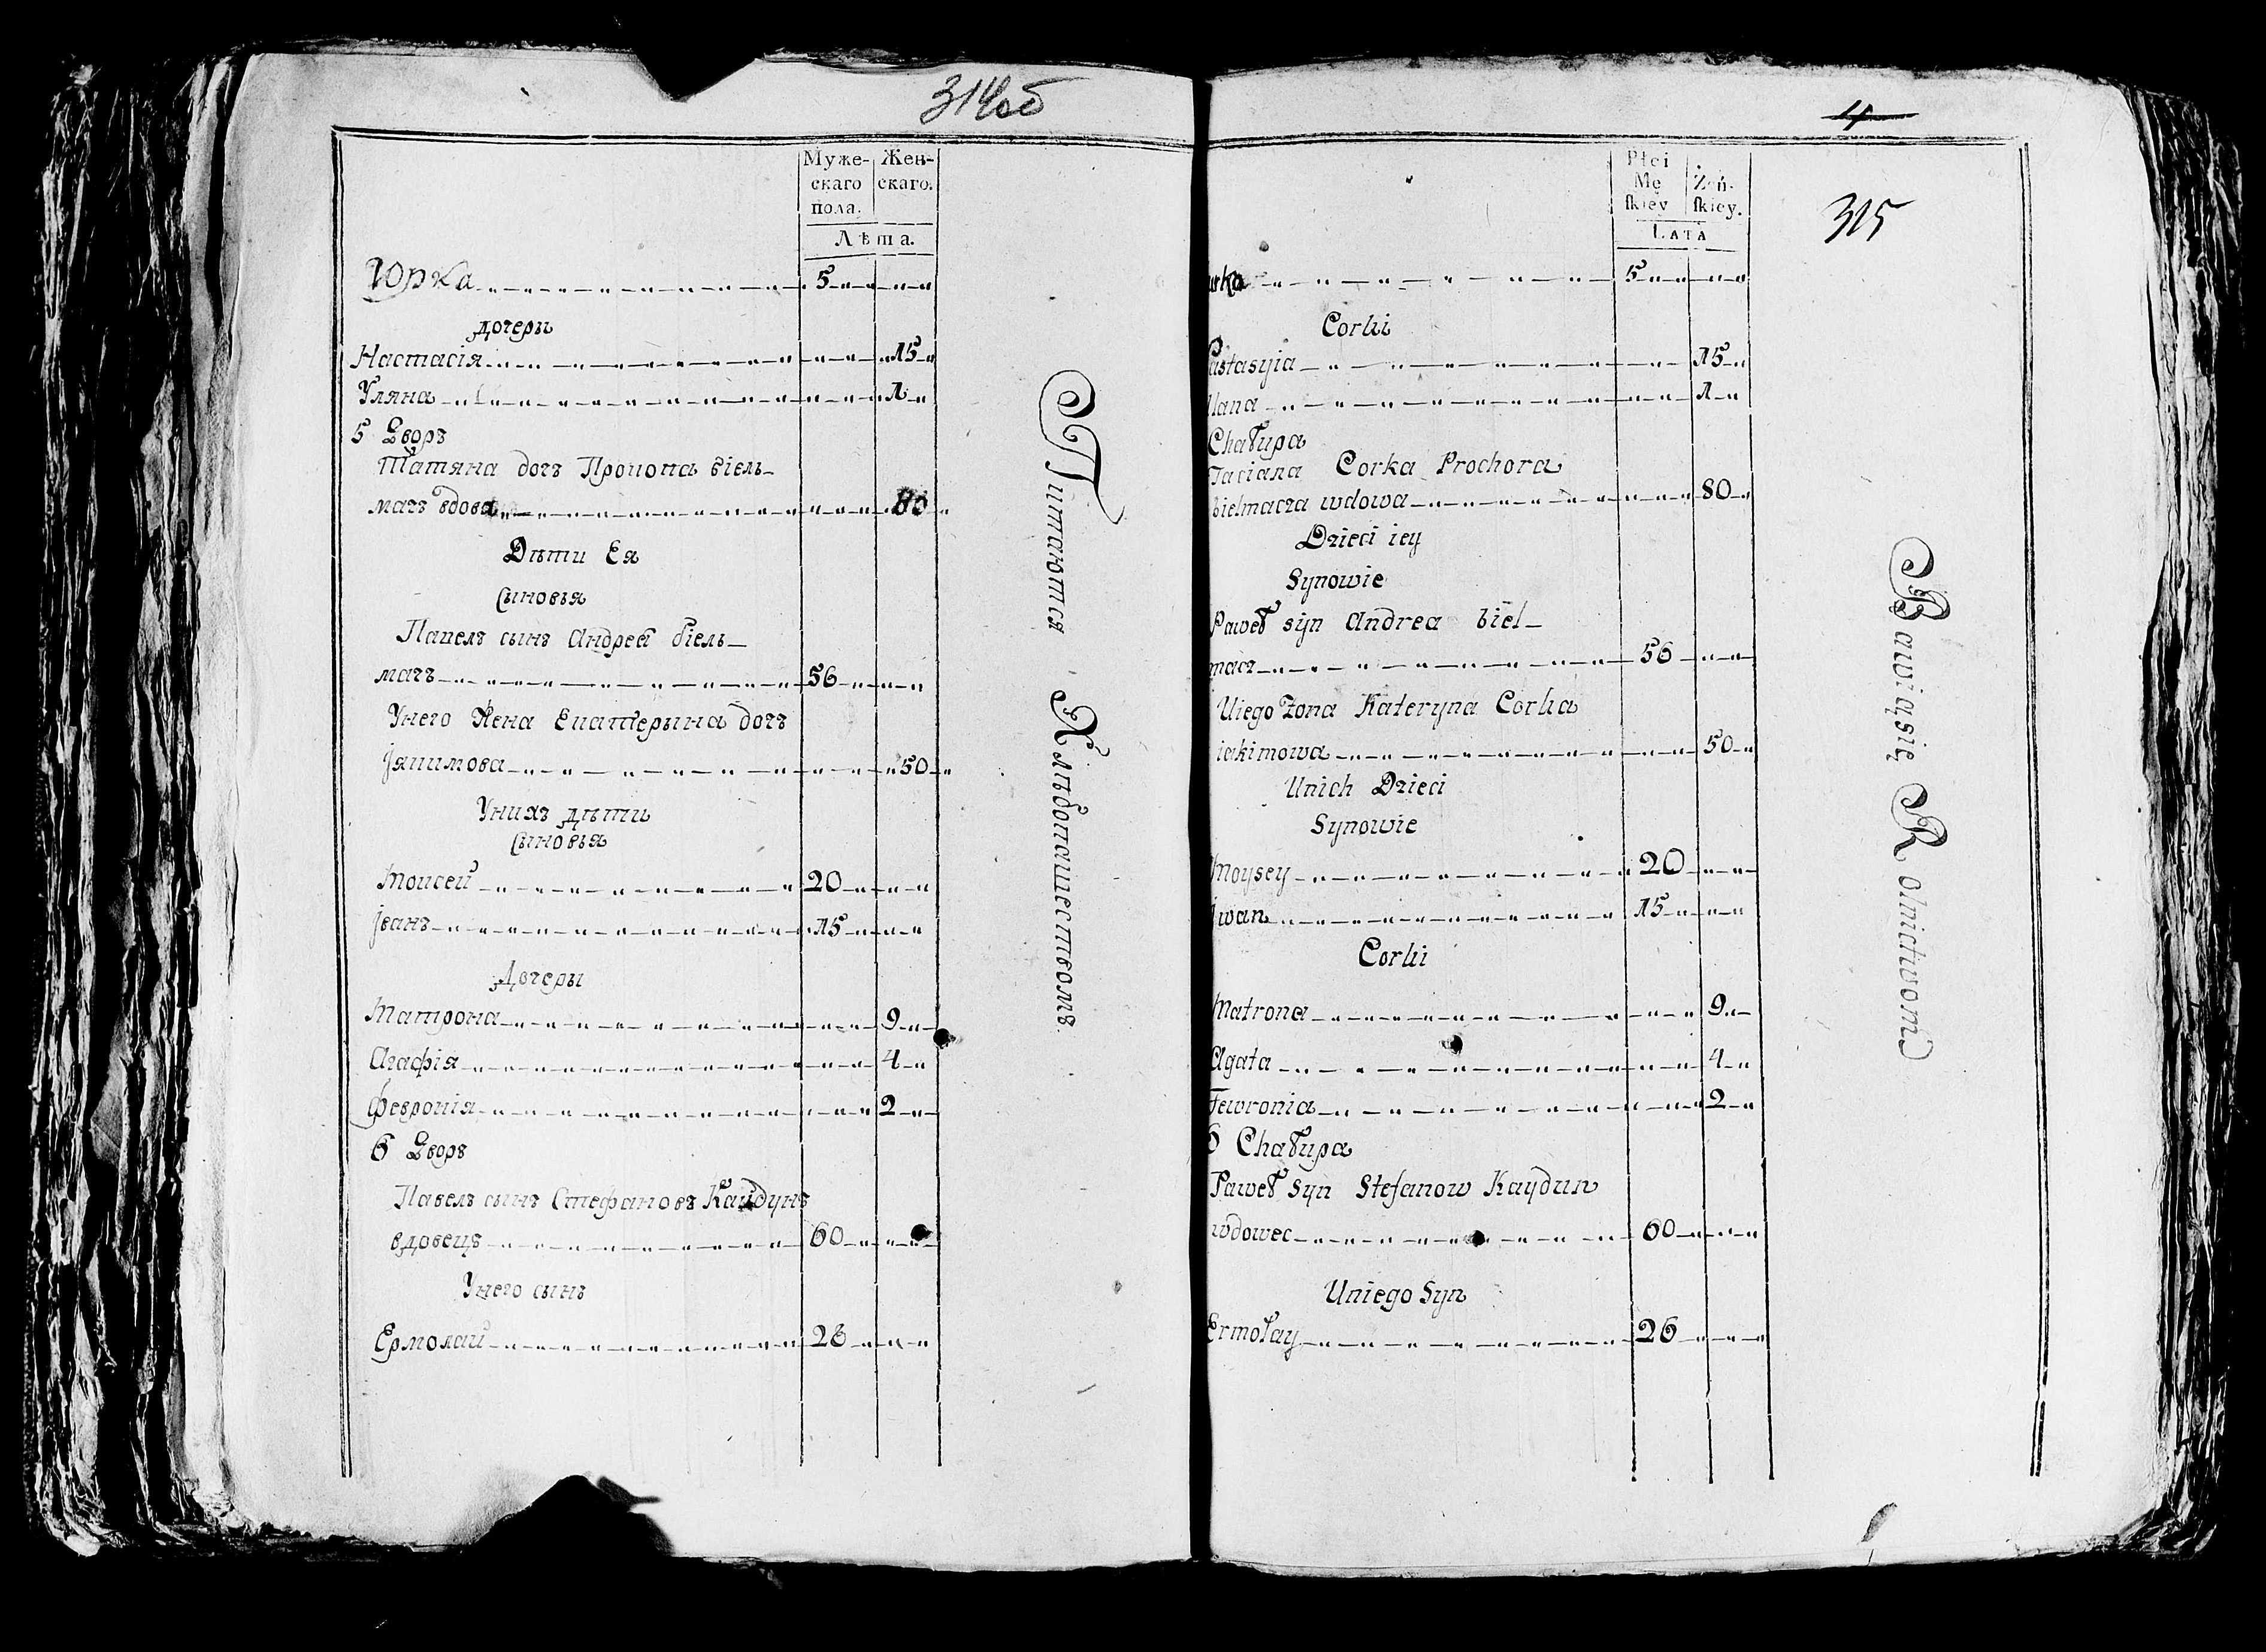 314об
Муже-
скаго
пола.
Жен-
скаго.
Лѣта.
Юрка 5
дочеры
Настасія 15
Уляна 1
5 Дворъ
Татяна дочъ Прокопа біель-
мачъ вдова 80
Дѣти Ея
Сыновья
Павелъ сынъ Андрей біель-
мачъ 56
Унего Жена Екатерына дочъ
Іякимова 50
Унихъ дѣти
Сыновья
Моисей 20
Іванъ 15
Дочеры
Матрона 9
Агафія 4
Февронія 2
6 Дворъ
Павелъ сынъ Стефановъ Кайдунъ
вдовецъ 60
Унего сынъ
Ермолай 26
Питаются Хлѣбопашествомъ.
4
315
Płci
Mę
skiey
Żeń-
skiey.
LATA
urka 5
Corki
astasyia 15
lana 1
Chałupa
Taciana Corka Prochora
bielmacza wdowa 80
Dzieci iey
Synowie
Paweł syn Andrea biel-
macz 56
Uiego Zona Kateryna Corka
iakimowa 50
Unich Dzieci
Synowie
Moysey 20
Iwan 15
Corki
Matrona 9
Agata 4
Fewronia 2
6 Chałupa
Paweł Syn Stefanow Kaydun
wdowec 60
Uniego Syn
Ermołay 26
Bawiąsię Rolnictwom